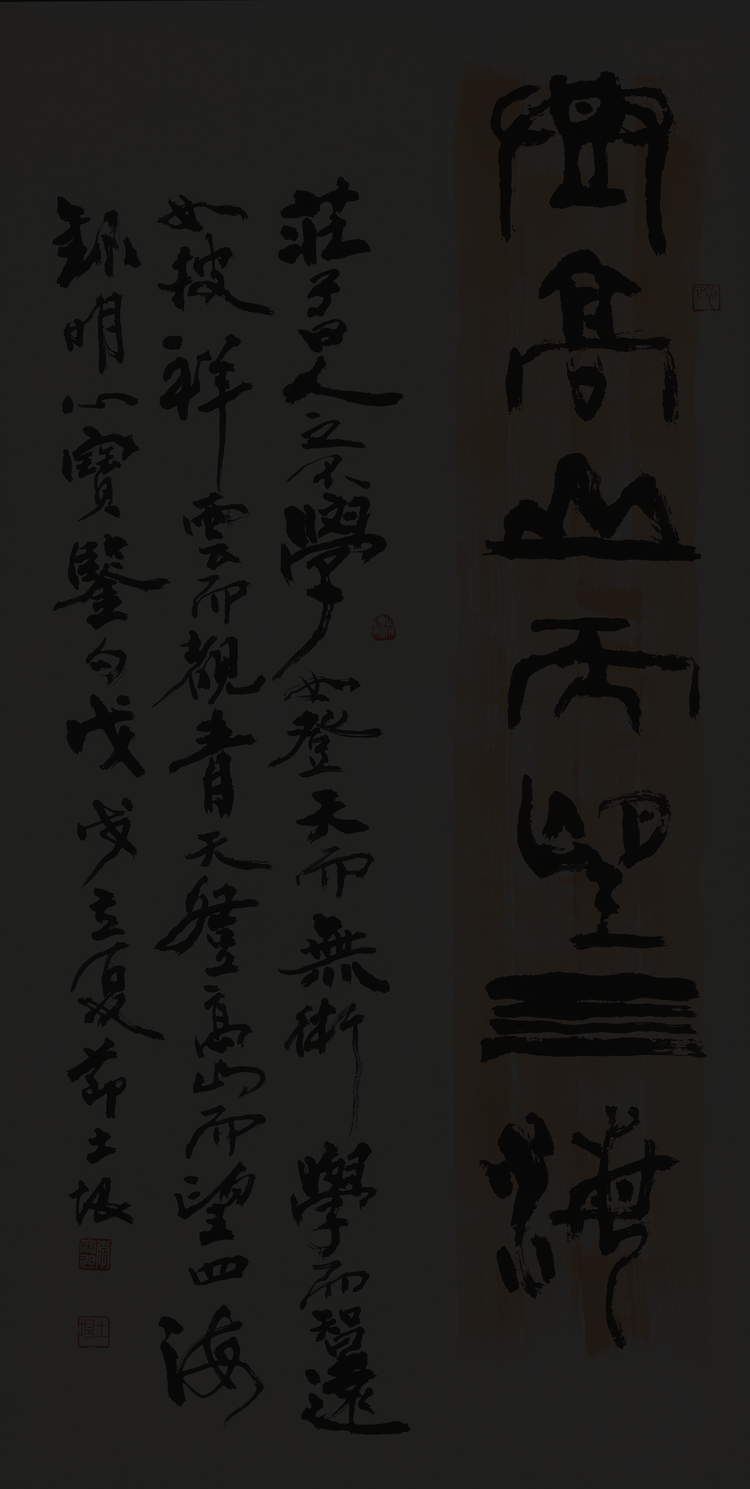 登高山而望三海
莊子曰人之不學如登天而無術學而智遠
如披祥雲而觀青天登高山而望四海
錄明心寶鑒句戊戌之夏節土垠